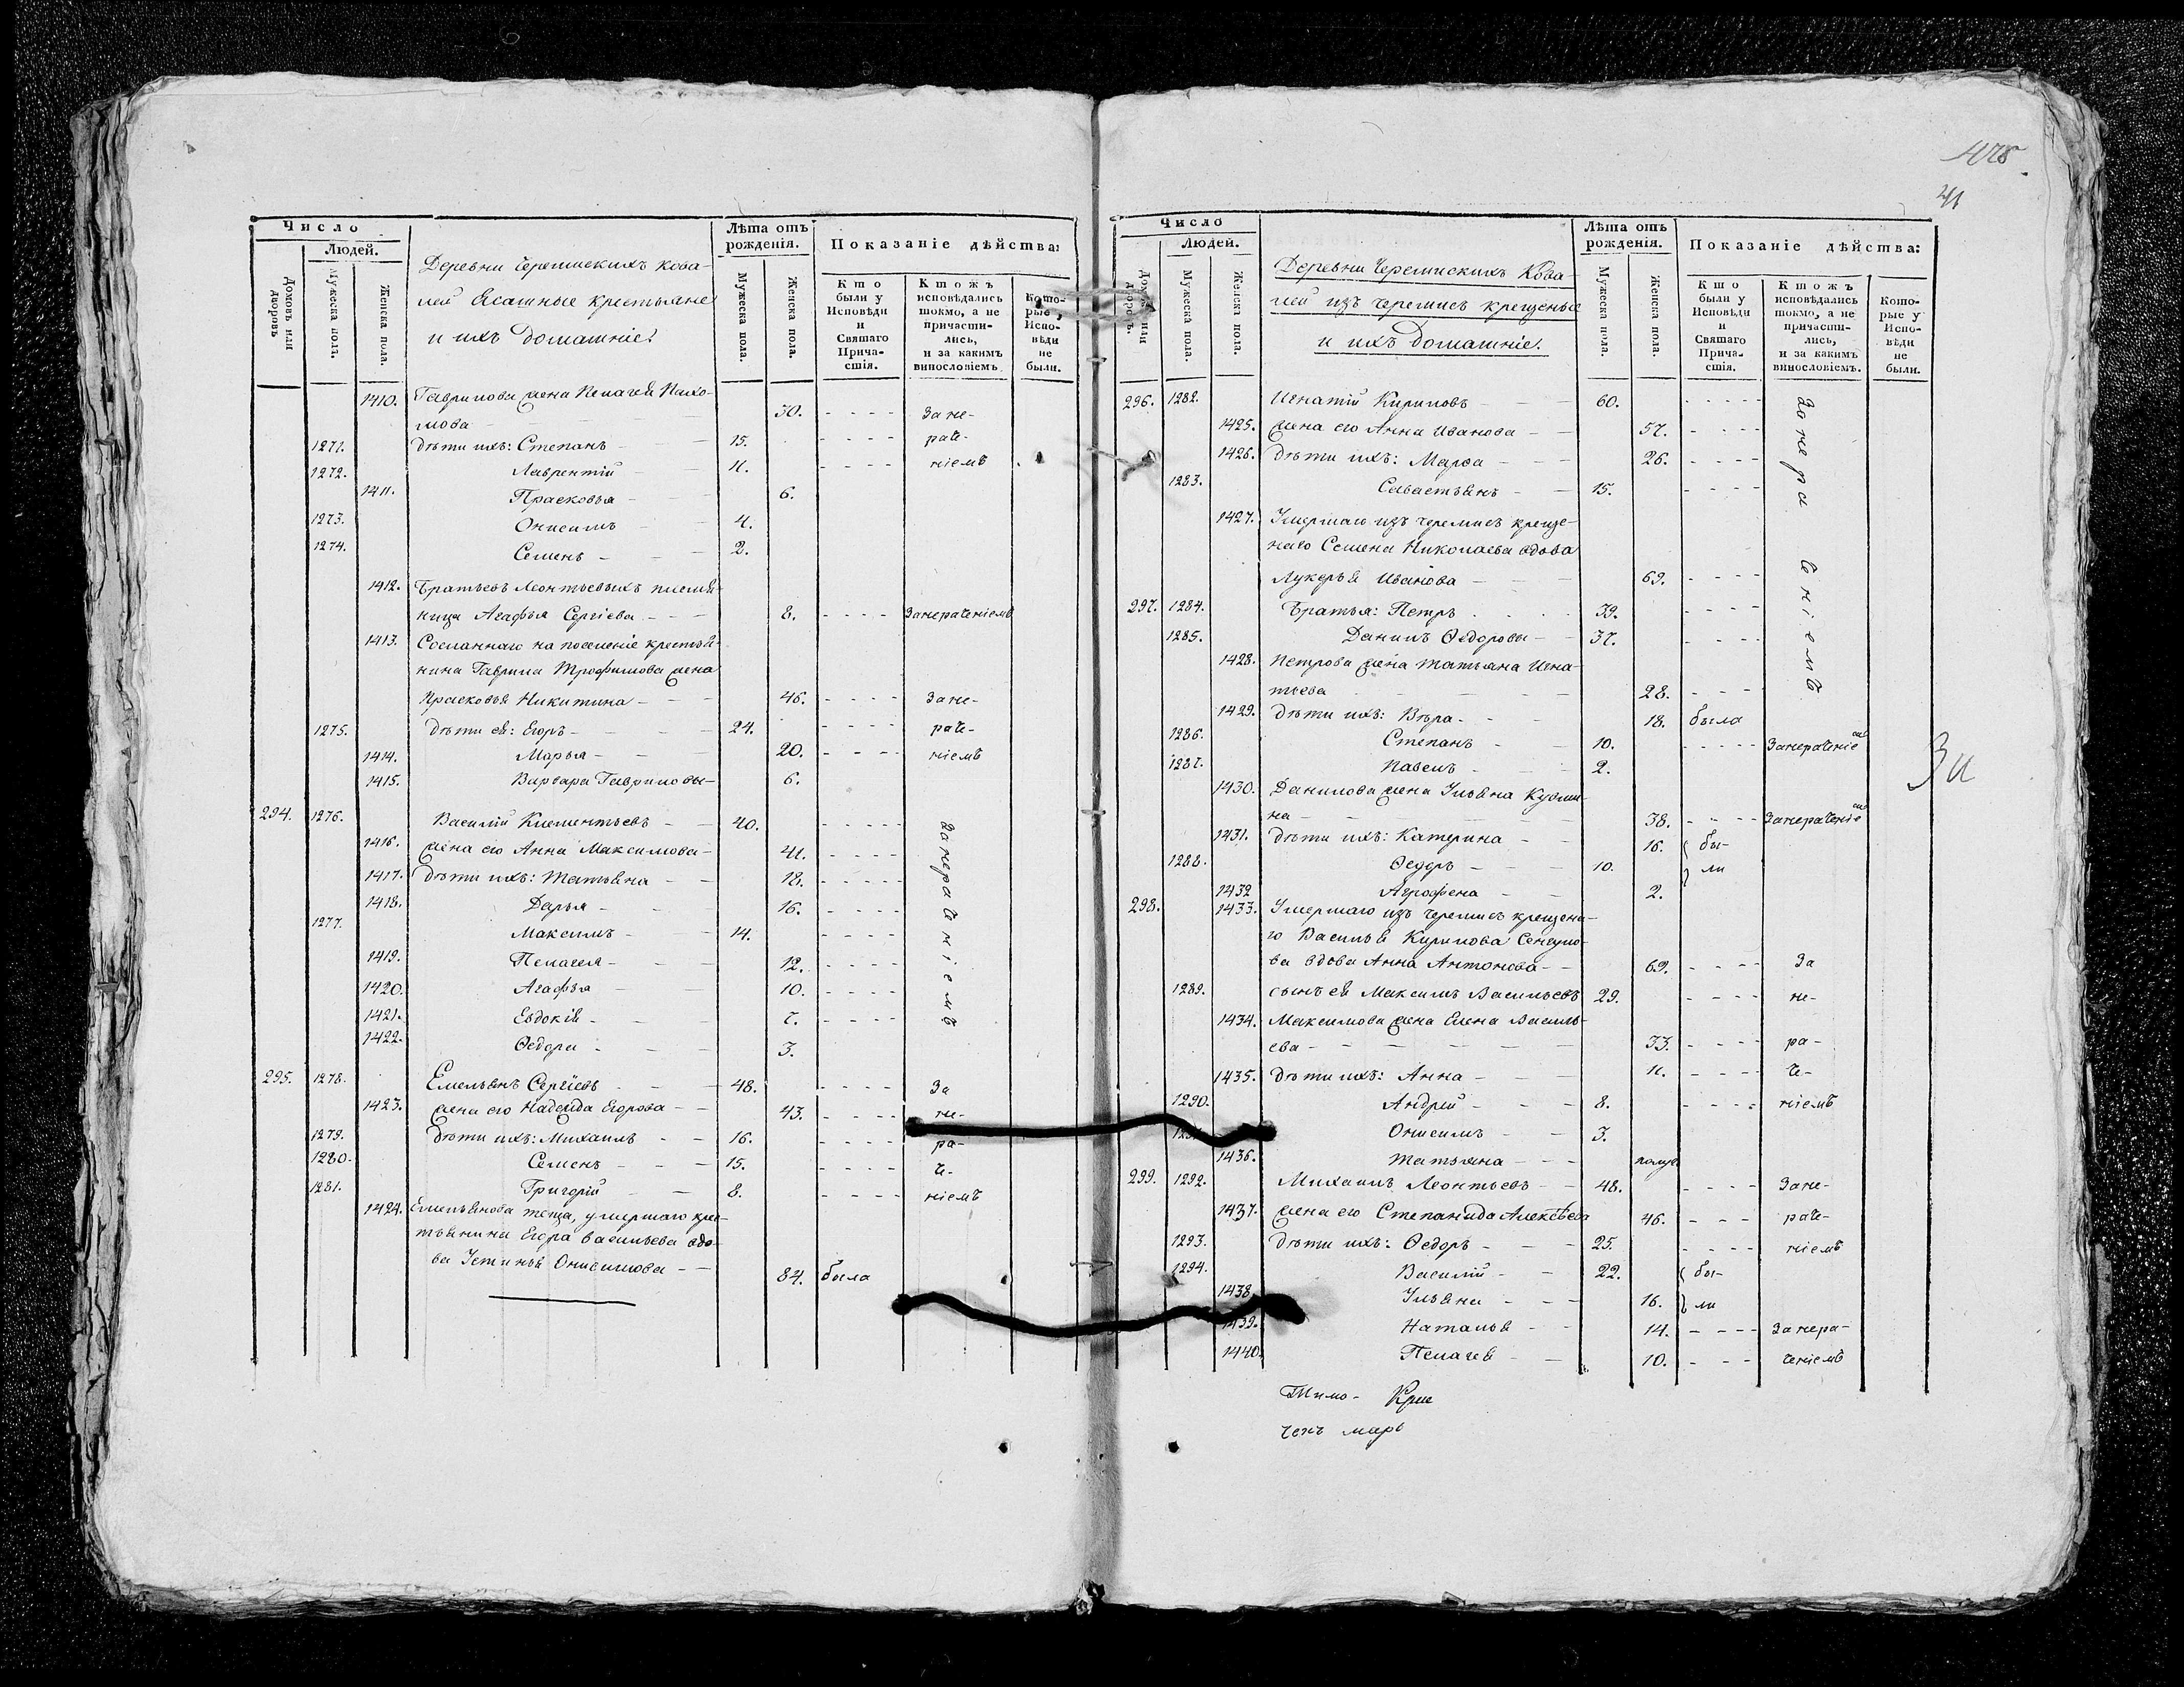 Число
Людей.
Домовъ или дворовъ
Мужеска пола.
Женска пола.
Деревни Черемискихъ Кова-
лей Ясашные крестьяне
и ихъ домашніе.
Лѣта отъ рожденія.
Мужеска пола.
Женска пола.
Показаніе дѣйства:
Кто были у Исповѣди и Святаго Прича-стія.
Ктожъ исповѣдались токмо, а не причасти-лись, и за какимъ винословіемъ.
Кото-рые у Испо-вѣди не были.
1410. Гаврилова жена Пелагея Пахо-
мова 30. - - - - За не-
1271. дѣти ихъ: Степанъ 15. - - - - раче-
1272. Лаврентій 11. - - - - ніемъ
1411. Прасковья 6.
1273. Онисимъ 4.
1274. Семенъ 2.
1412. Братьевъ Леонтьевыхъ племян-
ница Агафья Сергіева 8. - - - - Занераченіемъ
1413. Сосланнаго на поселеніе крестья-
нина Гаврила Трофимова жена
Прасковья Никитина 46. - - - - За не-
1275. дѣти ея: Егоръ 24. - - - - раче-
1414. Марья 20. - - - - ніемъ
1415. Варвара Гавриловы 6.
294. 1276. Василій Клементьевъ 40. - - - - Занераченіемъ
1416. жена его Анна Максимова 41. - - - -
1417. дѣти ихъ: Татьяна 18. - - - -
1418. Дарья 16. - - - -
1277. Максимъ 14. - - - -
1419. Пелагея 12. - - - -
1420. Агафья 10. - - - -
1421. Евдокія 7. - - - -
1422. Ѳедора 3.
295. 1278. Емельянъ Сергіевъ 48. - - - - За
1423. жена его Надежда Егорова 43. - - - - не-
1279. дѣти ихъ: Михаилъ 16. - - - - ра-
1280. Семенъ 15. - - - - че-
1281. Григорій 8. - - - - ніемъ
1424. Емельянова теща, умершаго крес-
тьянина Егора Васильева вдо-
ва Устинья Онисимова 84. была
41
Число
Людей.
Домовъ или дворовъ.
Мужеска пола.
Женска пола.
Деревни Черемискихъ Кова-
лей изъ черемисъ крещеные
и ихъ домашніе.
Лѣта отъ рожденія.
Мужеска пола.
Женска пола.
Показаніе дѣйства:
Кто были у Исповѣди и Святаго Прича-стія.
Ктожъ исповѣдались токмо, а не причасти-лись, и за какимъ винословіемъ.
Кото-рые у Испо-вѣди не были.
296. 1282. Игнатій Кириловъ 60. - - - - Занераченіемъ
1425. жена его Анна Иванова 57. - - - -
1426. дѣти ихъ: Марѳа 26. - - - -
1283. Савастьянъ 15. - - - -
1427. Умершаго изъ черемисъ креще-
наго Семена Николаева вдова
Лукерья Иванова 69. - - - -
297. 1284. Братья: Петръ 39. - - - -
1285. Данилъ Ѳедоровы 37. - - - -
1428. Петрова жена Татьяна Игна-
тьева 28. - - -
1429. дѣти ихъ: Вѣра 18. была
1286. Степанъ 10. - - - - Занераченіемъ
1287. Павелъ 2.
1430. Данилова жена Ульяна Кузми-
на 38. - - - - Занераченіемъ
1431. дѣти ихъ: Катерина 16. бы-
1288. Ѳедоръ 10. ли
1432 Агрофена 2.
298. 1433. Умершаго изъ черемисъ крещена-
го Василья Кирилова
ва вдова Анна Антонова 69. - - - - За
1289. сынъ ея Максимъ Васильевъ 29. - - - - не-
1434. Максимова жена Елена Василь-
ева 33. - - - - ра-
1435. дѣти ихъ: Анна 11. - - - - че-
1290. Андрей 8. - - - - ніемъ
Онисимъ 3.
1436. Татьяна полуг.
299. 1292. Михаилъ Леонтьевъ 48. - - - - За не-
1437. жена его Степанида Алексѣева 46. - - - раче-
1293. дѣти ихъ: Ѳедоръ 25. - - - - ніемъ
1294. Василій 22. бы-
1438 Ульяна 16. ли
1439. Наталья 14. - - - - Занера-
1440. Пелагея 10. - - - ченіемъ